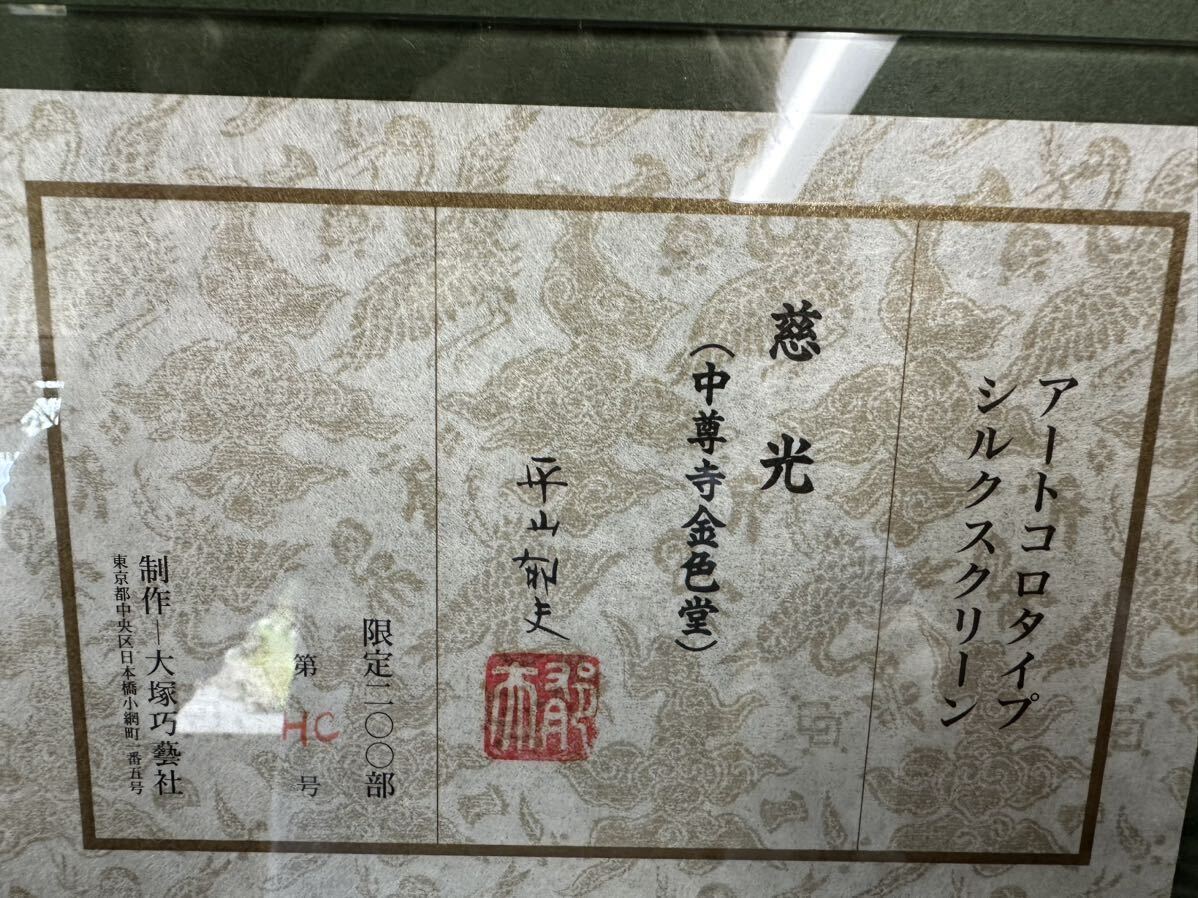 アートコロタイプ
シルクスクリーン
慈光
（中尊寺金色堂）
平山郁夫
限定二〇〇部
第 HC 号
制作―大塚巧藝社
東京都中央区日本橋小網町一番五号